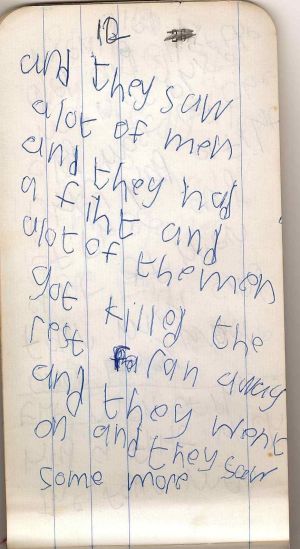 12
and they saw
alot of men
and they had
a fiht and
alot of the men
got killed the
rest ran away
and they went
on and they saw
some more